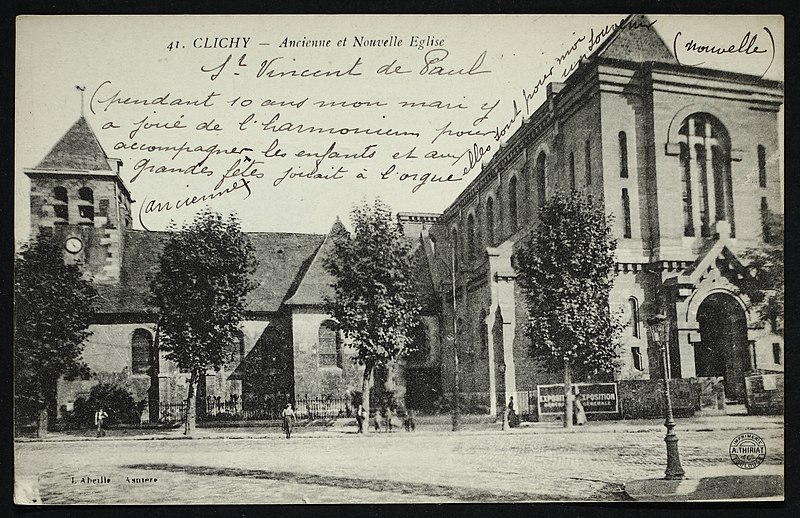 41. CLICHY — Ancienne et Nouvelle Eglise
St Vincent de Paul
(nouvelle)
(pendant 10 ans mon mari y
a joué de l'harmonium pour
accompagner les enfants et aux
grandes fêtes jouait à l'orgue
elles sont pour moi
un souvenir
(ancienne)
EXPOSITION
GÉNÉRALE
EXPOSITION
GÉNÉRALE
IMPRIMERIE
A. THIRIAT
TOULOUSE
L'Abeille Asnière